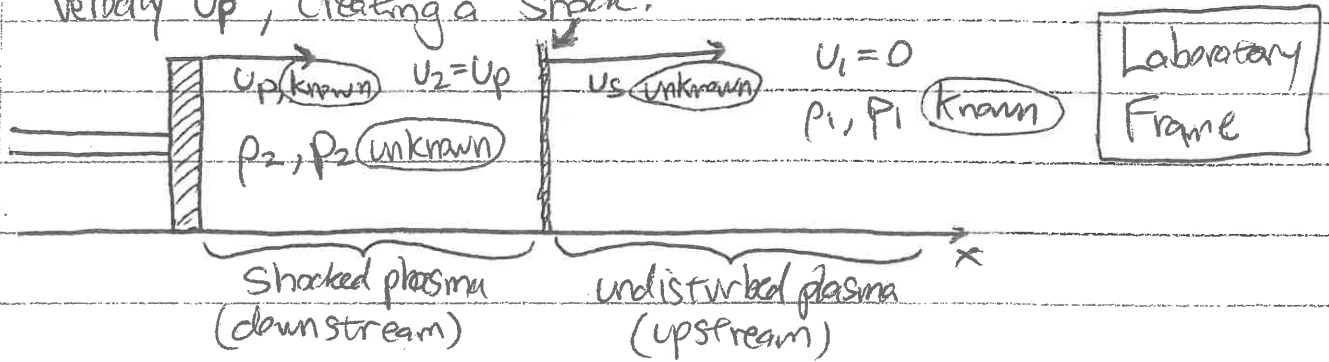 velocity Up, creating a shock.
Up, known U2=Up
Us unknown
U1=0
ρ1, P1 known
Laboratory
Frame
ρ2, P2 unknown
x
shocked plasma
(downstream)
undisturbed plasma
(upstream)